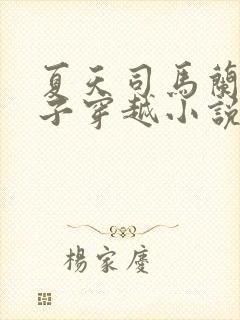 夏天司馬蘭
子穿越小說
楊家慶